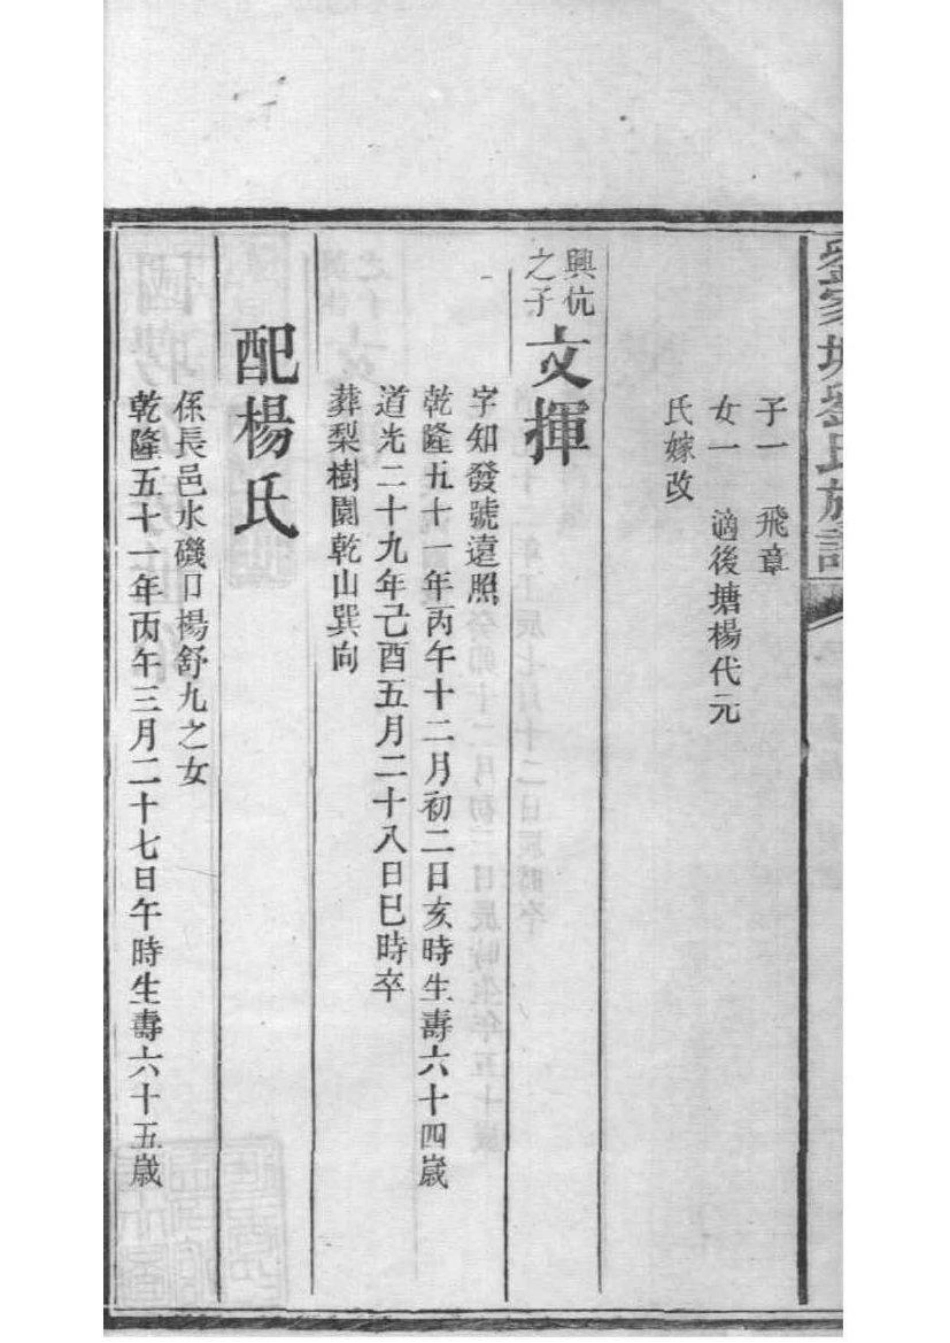 劉家塘劉氏族譜
子一 飛章
女一 適後塘楊代元
氏嫁改
興伉
之子
文揮
字知發號遠照
乾隆五十一年丙午十二月初二日亥時生壽六十四歲
道光二十九年己酉五月二十八日巳時卒
葬梨樹園乾山巽向
配楊氏
係長邑水磯口楊舒九之女
乾隆五十一年丙午三月二十七日午時生壽六十五歲